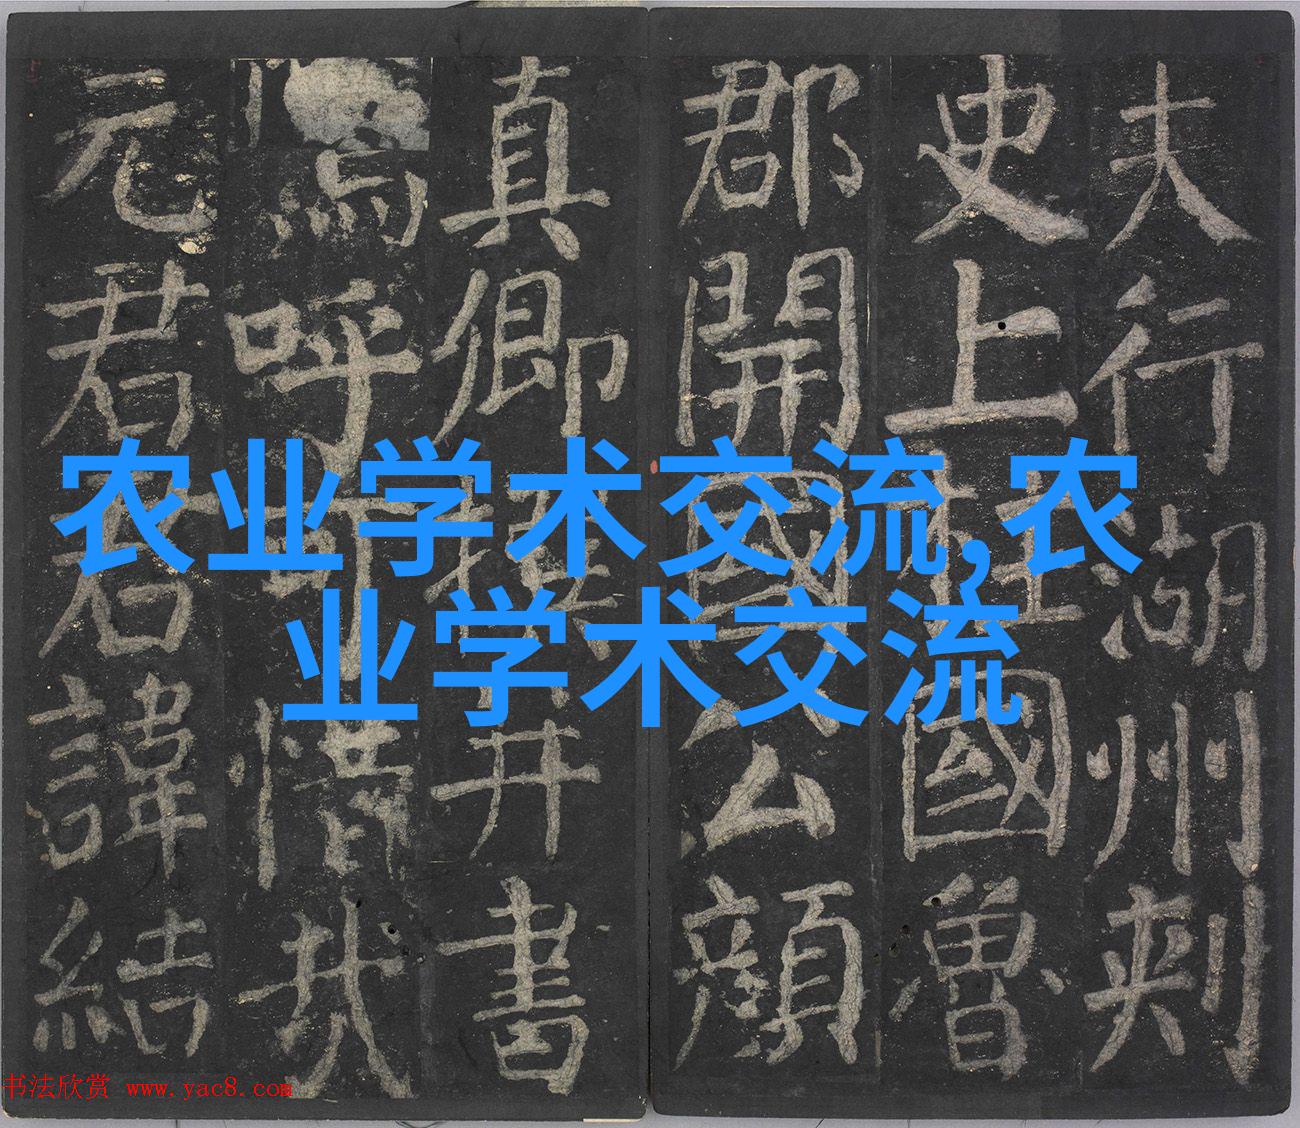 夫行湖州刺
史上柱國魯
郡開國公顏
真卿撰并書
嗚呼可惜哉
元君君諱結
农业学术交流,农
业学术交流
书法欣赏 www.yac8.com